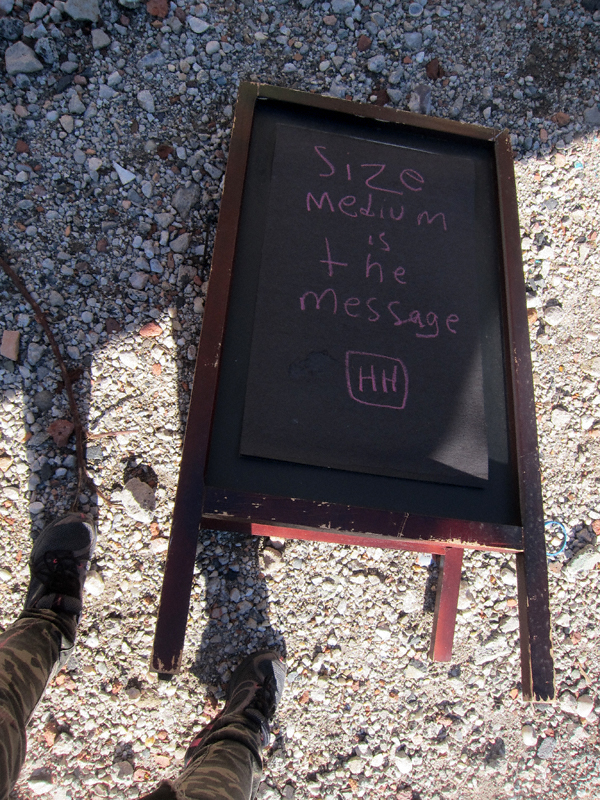 Size
medium
is
the
message
HH